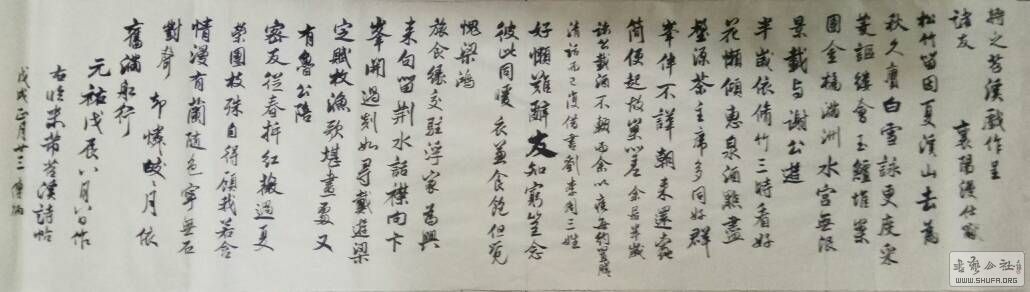 将之苕溪戲作呈
諸友 襄陽漫仕黻
松竹留因夏溪山去為
秋久賡白雪詠更度采
菱謳縷會玉鱸堆案
團金橘滿洲水宮無限
景載与謝公遊
半歲依脩竹三時看好
花懶傾惠泉酒點盡
壑源茶主席多同好群
峯伴不譁朝来還蠹
簡便起故巢嗟 余居半歲
諸公載酒不輟而余以疾每約置膳
清話而已復借書劉李周三姓
好懶難辭友知窮豈念
彼此同暖衣兼食飽但覺
愧梁鴻
旅食緣交駐浮家為興
来句留荆水話襟向卞
峯開過剡如尋戴遊梁
定賦枚漁歌堪畫處又
有魯公陪
密友從春拆紅薇過夏
榮團枝殊自得顧我若含
情漫有蘭隨色寧無石
對聲
却憐皎皎月依
舊滿船行
元祐戊辰八月八日作
右臨米芾苕溪詩帖
戊戌正月廿三
WWW.SHUFA.ORG